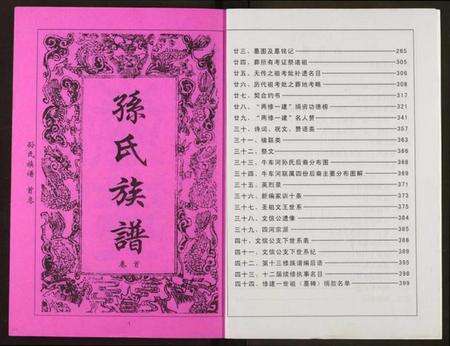 孙氏族谱 首卷
孫氏族譜
卷首
廿三、墓图及墓铭记 285
廿四、葬所有考证祭遗祖 305
廿五、无传之祖考妣补遗名目 306
廿六、历代祖考妣之葬地考略 308
廿七、契合约书 317
廿八、“两修一建”捐资功德榜 321
廿九、“两修一建”名人赞 341
三十、诗词、祝文、赞语类
三十一、楹联类 363
三十二、祭文 366
三十三、牛车河孙氏后裔分布图 368
三十四、牛车河联属四份后裔主要分布图解 369
三十五、英烈录 371
三十六、新编家训十条 373
三十七、圣祖文王世系 375
三十八、文信公遗像 384
三十九、四河宗派 385
四十、文信公支下世系表 388
四十一、文信公支下世系纪 389
四十二、第十三修族谱编后语 395
四十三、十二届续修执事名目 398
四十四、修建一世祖（墓碑）捐款名单 399